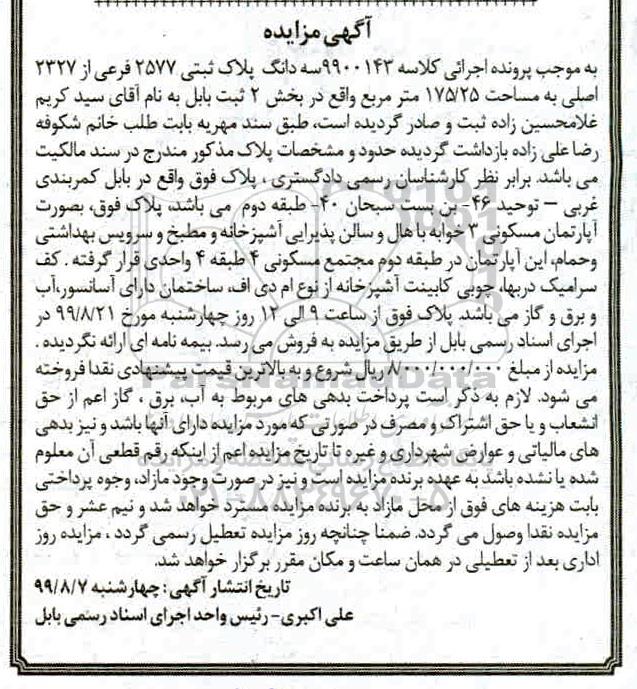 آگهی مزایده
به موجب پرونده اجرائی کلاسه ۹۹۰۰۱۴۳سه دانگ پلاک ثبتی ۲۵۷۷ فرعی از ۲۳۲۷
اصلی به مساحت ۱۷۵/۲۵ متر مربع واقع در بخش ۲ ثبت بابل به نام آقای سید کریم
غلامحسین زاده ثبت و صادر گردیده است، طبق سند مهریه بابت طلب خانم شکوفه
رضا علی زاده بازداشت گردیده حدود و مشخصات پلاک مذکور مندرج در سند مالکیت
می باشد. برابر نظر کارشناسان رسمی دادگستری ، پلاک فوق واقع در بابل کمربندی
غربی – توحید ۴۶- بن بست سبحان ۴۰- طبقه دوم می باشد، پلاک فوق، بصورت
آپارتمان مسکونی ۳ خوابه با هال و سالن پذیرایی آشپزخانه و مطبخ و سرویس بهداشتی
وحمام، این آپارتمان در طبقه دوم مجتمع مسکونی ۴ طبقه ۴ واحدی قرار گرفته . کف
سرامیک دربها، چوبی کابینت آشپزخانه از نوع ام دی اف، ساختمان دارای آسانسور،آب
و برق و گاز می باشد. پلاک فوق از ساعت ۹ الی ۱۲ روز چهارشنبه مورخ ۹۹/۸/۲۱ در
اجرای اسناد رسمی بابل از طریق مزایده به فروش می رسد. بیمه نامه ای ارائه نگردیده .
مزایده از مبلغ ۸/۰۰۰/۰۰۰/۰۰۰ ریال شروع و به بالاترین قیمت پیشنهادی نقدا فروخته
می شود. لازم به ذکر است پرداخت بدهی های مربوط به آب، برق ، گاز اعم از حق
انشعاب و یا حق اشتراک و مصرف در صورتی که مورد مزایده دارای آنها باشد و نیز بدهی
های مالیاتی و عوارض شهرداری و غیره تا تاریخ مزایده اعم از اینکه رقم قطعی آن معلوم
شده یا نشده باشد به عهده برنده مزایده است و نیز در صورت وجود مازاد، وجوه پرداختی
بابت هزینه های فوق از محل مازاد به برنده مزایده مسترد خواهد شد و نیم عشر و حق
مزایده نقدا وصول می گردد. ضمنا چنانچه روز مزایده تعطیل رسمی گردد ، مزایده روز
اداری بعد از تعطیلی در همان ساعت و مکان مقرر برگزار خواهد شد.
تاریخ انتشار آگهی : چهارشنبه ۹۹/۸/۷
علی اکبری- رئیس واحد اجرای اسناد رسمی بابل
ParsNamadData
۰۲۱-۸۸۳۴۹۶۷۰-۵